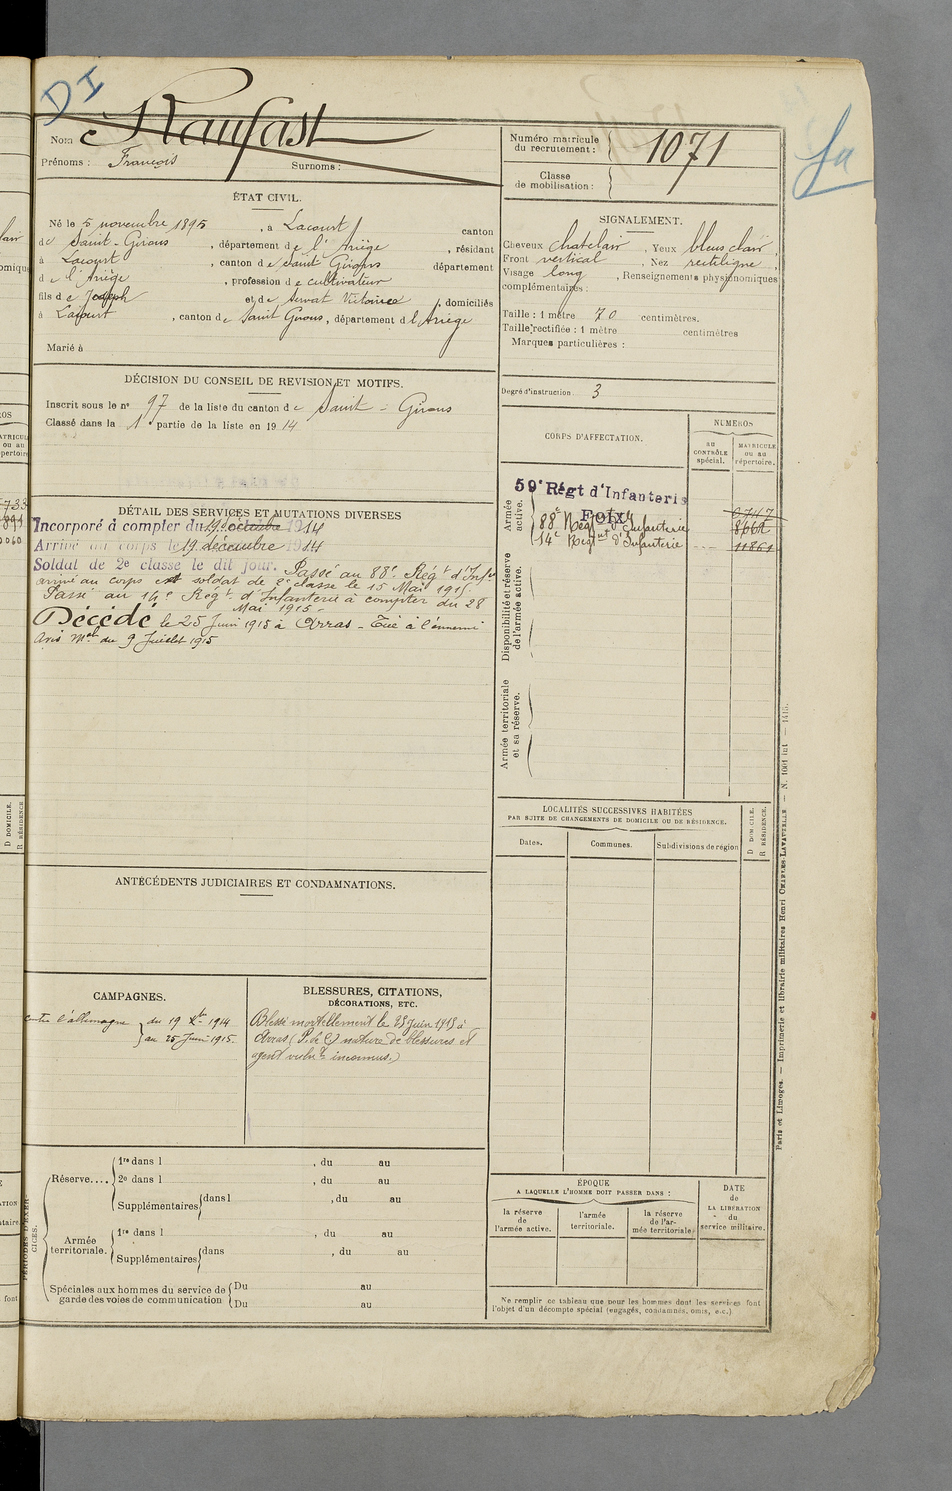 DI
Nom Raufast
Prénoms : François Surnoms :
Numéro matricule du recrutement : 1071
Classe de mobilisation :
ÉTAT CIVIL.
Né le 5 novembre 1895, à Lacourt canton
de Saint-Girons, département de l'Ariège, résidant
à Lacourt, canton de Saint Girons département
d e l'Ariège, profession de cultivateur
fils de Joseph et de Servat Victoire, domiciliés
à Lacourt, canton de Saint Girons, département d l'Ariège
Marié à
SIGNALEMENT.
Cheveux chatclair, Yeux bleus clair
Front vertical, Nez rectiligne,
Visage long, Renseignements physionomiques
complémentaires :
Taille : 1 mètre 70 centimètres.
Taille rectifiée : 1 mètre centimètres
Marques particulières :
DÉCISION DU CONSEIL DE REVISION ET MOTIFS.
Inscrit sous le n° 97 de la liste du canton de Saint-Girons
Classé dans la 1e partie de la liste en 1914
Degré d'instruction. 3
DÉTAIL DES SERVICES ET MUTATIONS DIVERSES
Incorporé à compter du 19 1914
Arrivé au corps le 19 décembre 1914
Soldat de 2e classe le dit jour. Passé au 88e Régt d'Infie
arrivé au corps et soldat de 2e classe le 15 Mai 1915.
Passé au 14e Régt d'Infanterie à compter du 28
Mai 1915 -
Décédé le 25 Juin 1915 à Arras - Tué à l'ennemi
Avis Mel du 9 Juillet 1915
CORPS D'AFFECTATION.
NUMÉROS
au CONTRÔLE spécial.
MATRICULE ou au répertoire.
Armée active.
59e Régt d'Infanterie
Foix
88e Régt d'Infanterie 8662
14e Régint d'Infanterie 11861
Disponibilité et réserve de l'armée active.
Armée territoriale et sa réserve.
LOCALITÉS SUCCESSIVES HABITÉES
PAR SUITE DE CHANGEMENTS DE DOMICILE OU DE RÉSIDENCE.
Dates. Communes. Subdivisions de région
D DOMICILE.
R RÉSIDENCE.
ANTÉCÉDENTS JUDICIAIRES ET CONDAMNATIONS.
CAMPAGNES.
contre l'allemagne du 19 Xbre 1914
au 25 Juin 1915.
BLESSURES, CITATIONS,
DÉCORATIONS, ETC.
Blessé mortellement le 25 Juin 1915 à
Arras (P. de C) nature de blessures et
agent vulnt inconnus.)
PÉRIODES D'EXERCICES.
Réserve.... 1re dans l , du au
2e dans l , du au
Supplémentaires dans l , du au
Armée territoriale. 1re dans l , du au
Supplémentaires dans , du au
Spéciales aux hommes du service de garde des voies de communication Du au
Du au
ÉPOQUE
A LAQUELLE L'HOMME DOIT PASSER DANS :
la réserve de l'armée active.
l'armée territoriale.
la réserve de l'armée territoriale
DATE de LA LIBÉRATION du service militaire.
Ne remplir ce tableau que pour les hommes dont les services font
l'objet d'un décompte spécial (engagés, condamnés, omis, etc.)
Paris et Limoges. — Imprimerie et librairie militaires Henri CHARLES-LAVAUZELLE